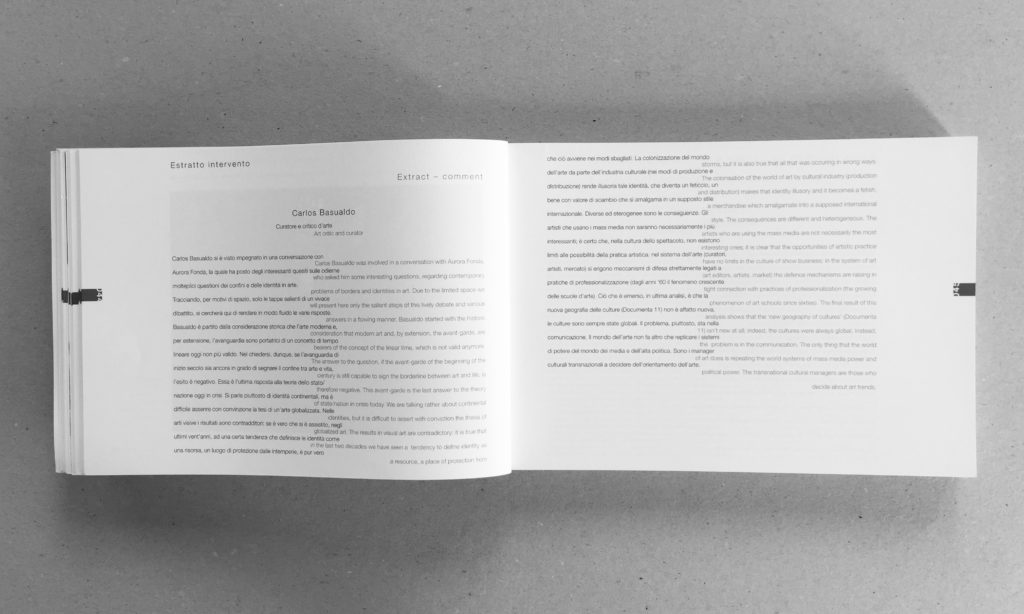 Estratto intervento
Extract – comment
Carlos Basualdo
Curatore e critico d'arte
Art critic and curator
Carlos Basualdo si è visto impegnato in una conversazione con
Carlos Basualdo was involved in a conversation with Aurora Fonda,
Aurora Fonda, la quale ha posto degli interessanti quesiti sulle odierne
who asked him some interesting questions, regarding contemporary
molteplici questioni dei confini e delle identità in arte.
problems of borders and identities in art. Due to the limited space we
Tracciando, per motivi di spazio, solo le tappe salienti di un vivace
will present here only the salient steps of this lively debate and various
dibattito, si cercherà qui di rendere in modo fluido le varie risposte.
answers in a flowing manner. Basualdo started with the historic
Basualdo è partito dalla considerazione storica che l'arte moderna e,
consideration that modern art and, by extension, the avant-garde, are
per estensione, l'avanguardia sono portatrici di un concetto di tempo
bearers of the concept of the linear time, which is not valid anymore.
lineare oggi non più valido. Nel chiedersi, dunque, se l'avanguardia di
The answer to the question, if the avant-garde of the beginning of the
inizio secolo sia ancora in grado di segnare il confine tra arte e vita,
century is still capable to sign the borderline between art and life, is
l'esito è negativo. Essa è l'ultima risposta alla teoria dello stato/
therefore negative. This avant-garde is the last answer to the theory
nazione oggi in crisi. Si parla piuttosto di identità continentali, ma è
of state/nation in crisis today. We are talking rather about continental
difficile asserire con convinzione la tesi di un'arte globalizzata. Nelle
identities, but it is difficult to assert with conviction the thesis of
arti visive i risultati sono contraddittori: se è vero che si è assistito, negli
globalized art. The results in visual art are contradictory: it is true that
ultimi vent'anni, ad una certa tendenza che definisce le identità come
in the last two decades we have seen a tendency to define identity as
una risorsa, un luogo di protezione dalle intemperie, è pur vero
a resource, a place of protection from
che ciò avviene nei modi sbagliati. La colonizzazione del mondo
storms, but it is also true that all that was occuring in wrong ways.
dell'arte da parte dell'industria culturale (nei modi di produzione e
The colonisation of the world of art by cultural industry (production
distribuzione) rende illusoria tale identità, che diventa un feticcio, un
and distribution) makes that identity illusory and it becomes a fetish,
bene con valore di scambio che si amalgama in un supposto stile
a merchandise which amalgamate into a supposed international
internazionale. Diverse ed eterogenee sono le conseguenze. Gli
style. The consequences are different and heterogeneous. The
artisti che usano i mass media non saranno necessariamente i più
artists who are using the mass media are not necessarily the most
interessanti; è certo che, nella cultura dello spettacolo, non esistono
interesting ones; it is clear that the opportunities of artistic practice
limiti alle possibilità della pratica artistica: nel sistema dell'arte (curatori,
have no limits in the culture of show business; in the system of art
artisti, mercato) si ergono meccanismi di difesa strettamente legati a
(art editors, artists, market) the defence mechanisms are raising in
pratiche di professionalizzazione (dagli anni '60 il fenomeno crescente
tight connection with practices of professionalization (the growing
delle scuole d'arte). Ciò che è emerso, in ultima analisi, è che la
phenomenon of art schools since sixties). The final result of this
nuova geografia delle culture (Documenta 11) non è affatto nuova,
analysis shows that the 'new geography of cultures' (Documenta
le culture sono sempre state globali. Il problema, piuttosto, sta nella
11) isn't new at all; indeed, the cultures were always global. Instead,
comunicazione. Il mondo dell'arte non fa altro che replicare i sistemi
the problem is in the communication. The only thing that the world
di potere del mondo dei media e dell'alta politica. Sono i manager
of art does is repeating the world systems of mass media power and
culturali transnazionali a decidere dell'orientamento dell'arte.
political power. The transnational cultural managers are those who
decide about art trends.